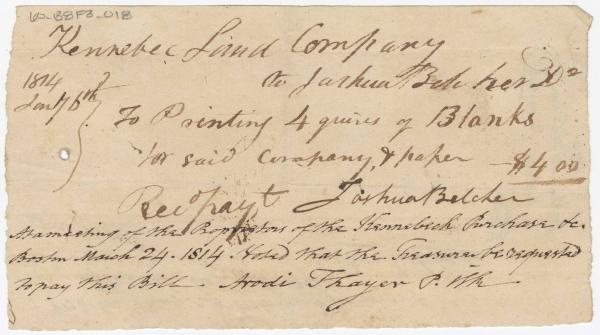 60_B8F3_018
Kennebec Land Company
1814 to Joshua Belcher Dr
Jany 6th
To Printing 4 quires of Blanks
for said Company, & paper — $4.00
Recd payt Joshua Belcher
At a meeting of the Proprietors of the Kennebeck Purchase &c.
Boston March 24. 1814. Voted that the Treasurer be requested
to pay this Bill. Arodi Thayer P. Clk